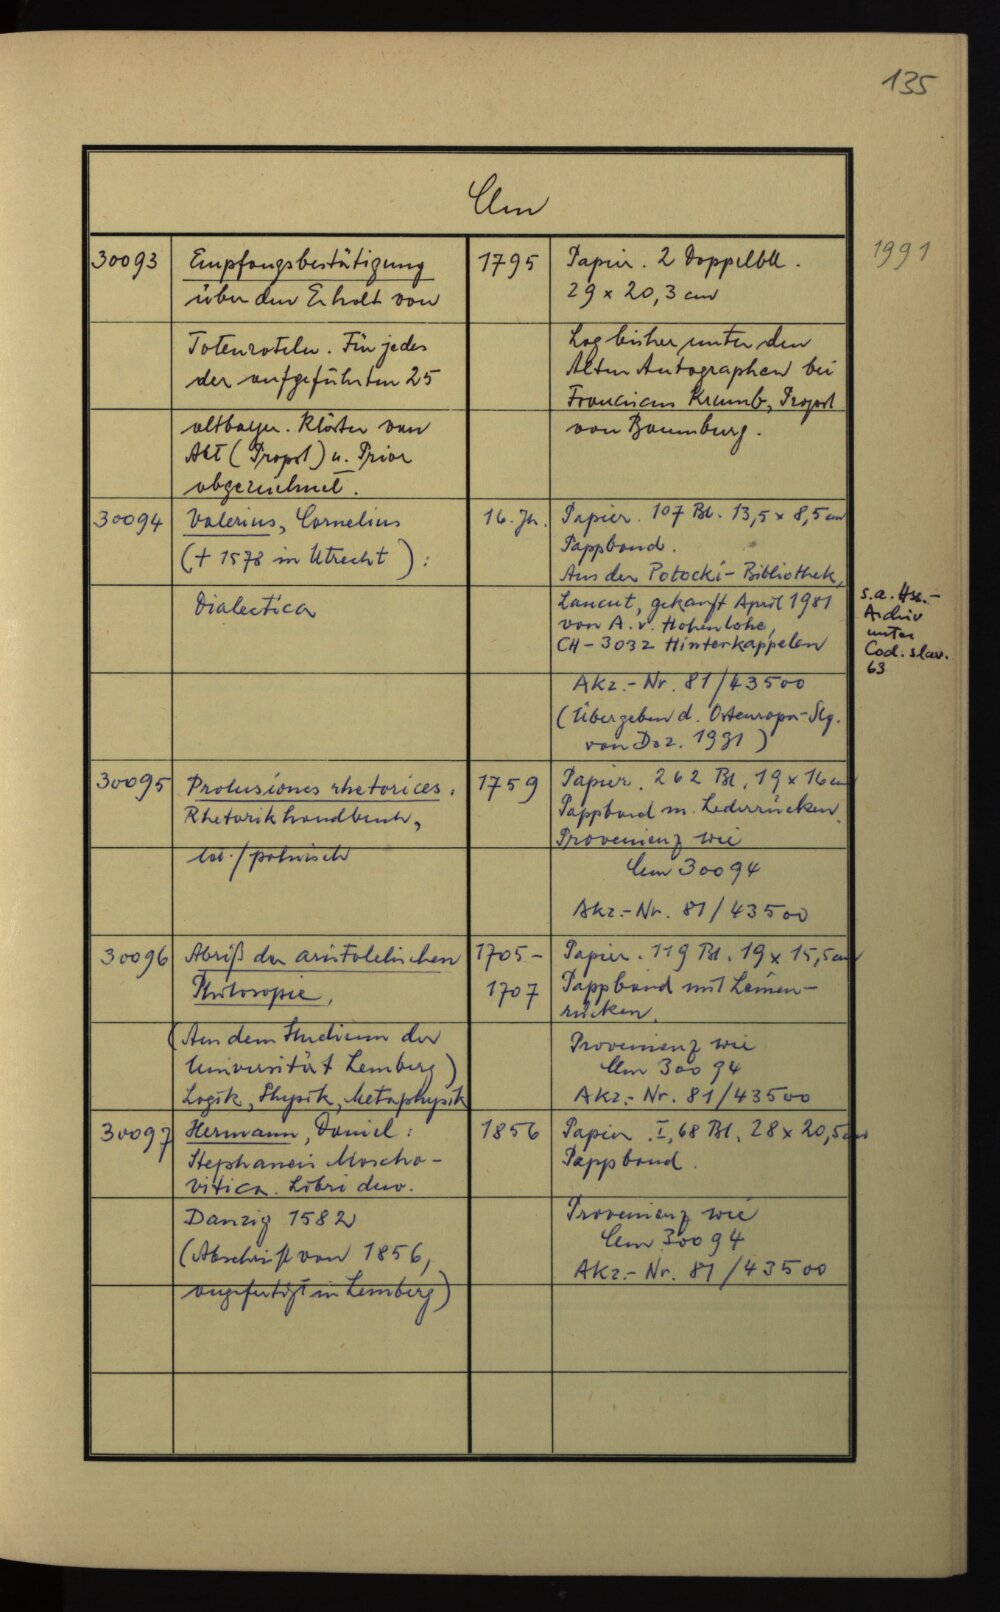 135
Clm
1991
30093
Empfangsbestätigung
über den Erhalt von
Totenroteln. Für jedes
der aufgeführten 25
altbayer. Klöster von
Abt (Propst) u. Prior
abgezeichnet.
1795
Papier. 2 Doppelbll.
29 x 20,3 cm
Lag bisher unter den
Alten Autographen bei
Franciscus Krumb, Propst
von Baumburg.
30094
Valerius, Cornelius
(+ 1578 in Utrecht):
Dialectica
16. Jh.
Papier. 107 Bl. 13,5 x 8,5 cm
Pappband.
Aus der Potocki-Bibliothek,
Lancut, gekauft April 1981
von A. v. Hohenlohe,
CH-3032 Hinterkappelen
Akz.-Nr. 81/43500
(Übergeben d. Osteuropa-Slg.
von Dez. 1991)
s.a. Hss.-
Archiv
unter
Cod. slav.
63
30095
Prolusiones rhetorices.
Rhetorikhandbuch,
lat./polnisch
1759
Papier. 262 Bl. 19 x 16 cm
Pappband m. Lederrücken.
Provenienz wie
Clm 30094
Akz.-Nr. 81/43500
30096
Abriß der aristotelischen
Philosopie,
(Aus dem Studium der
Universität Lemberg)
Logik, Physik, Metaphysik
1705-
1707
Papier. 119 Bl. 19 x 15,5 cm
Pappband mit Leinen-
rücken.
Provenienz wie
Clm 30094
Akz.-Nr. 81/43500
30097
Hermann, Daniel:
Stephaneis Moscho-
vitica. Libri duo.
Danzig 1582
(Abschrift von 1856,
angefertigt in Lemberg)
1856
Papier. I, 68 Bl. 28 x 20,5 cm
Pappband.
Provenienz wie
Clm 30094
Akz.-Nr. 81/43500